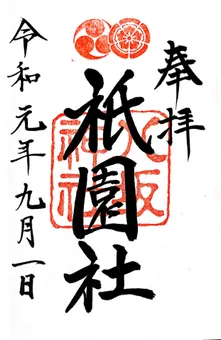 奉拝
祇園社
八坂神社
令和元年九月一日